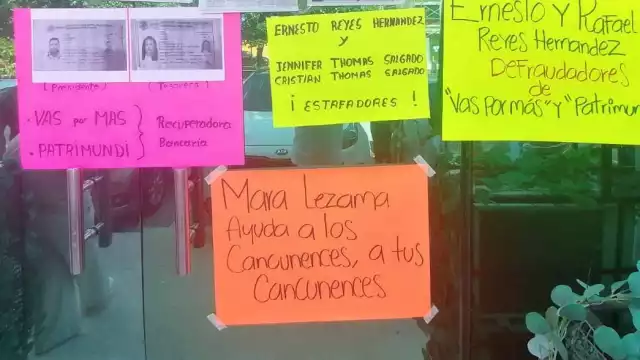 (Presidente)
(Tesorera)
• VAS por MAS
• PATRIMUNDI
Recuperadora
Bancaria
ERNESTO REYES HERNANDEZ
Y
JENNIFER THOMAS SALGADO
CRISTIAN THOMAS SALGADO
¡ ESTAFADORES !
Ernesto y Rafael
Reyes Hernandez
DeFraudadores
de
"Vas Por más" y "Patrimu
Mara Lezama
Ayuda a los
Cancunences, a tus
Cancunences